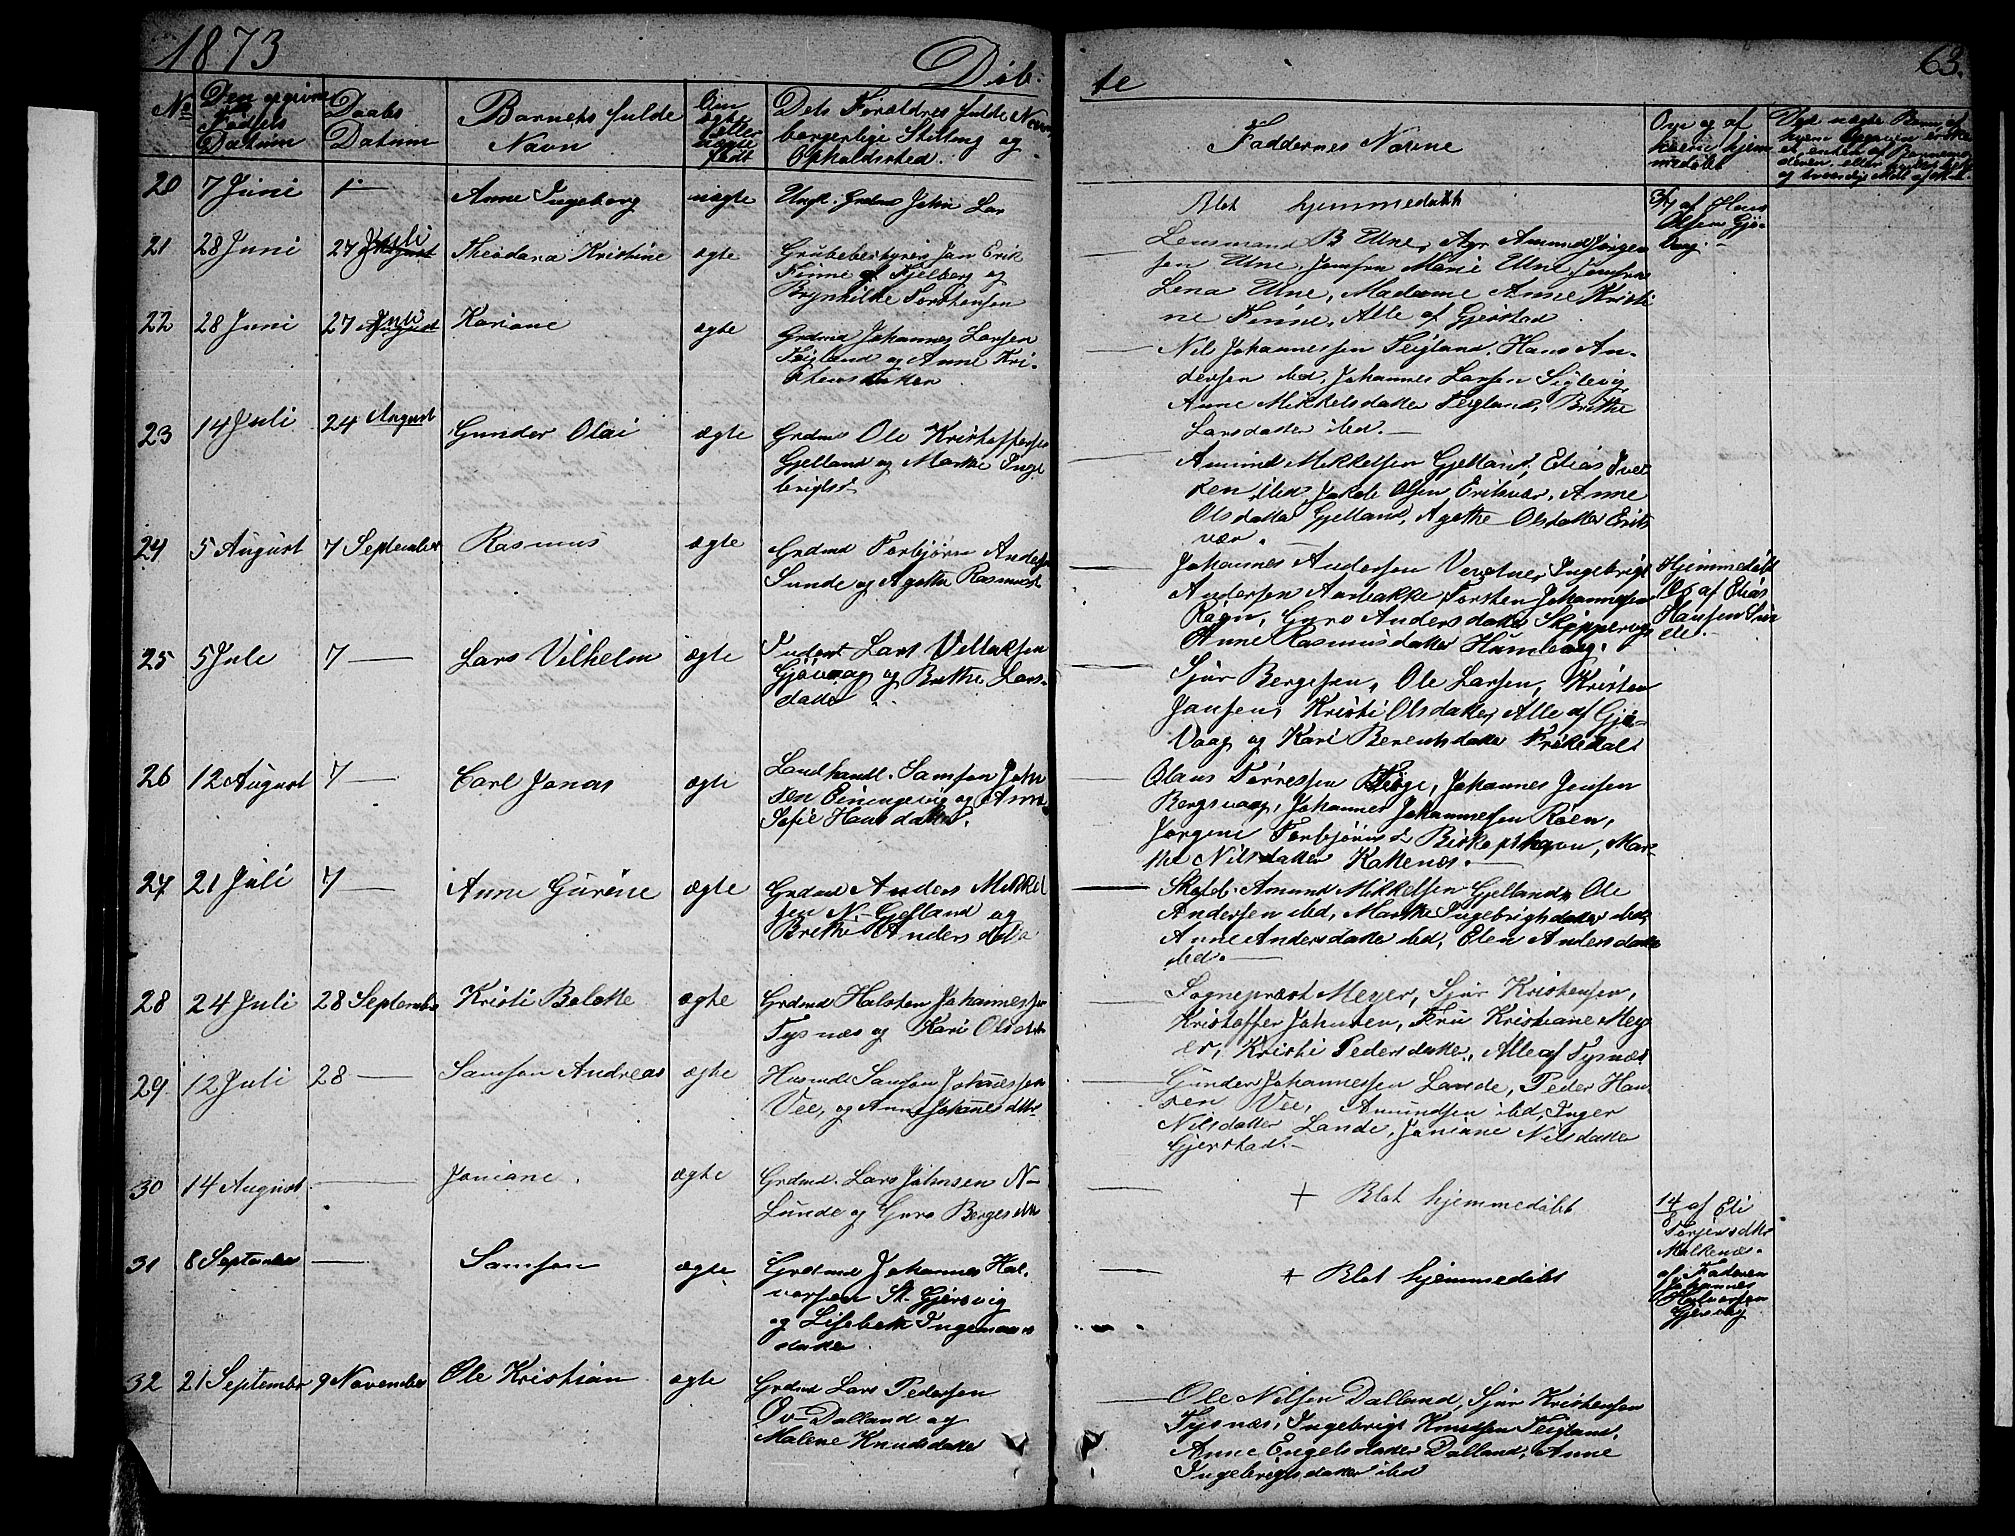 1873
Döb-
te
63.
No
Den opgivne
Fødsels
Datum
Daabs
Datum
Barnets fulde
Navn
Om
ægte
eller
uægte
født
Dets Forældres fulde Navn
borgerlige Stilling og
Opholdssted.
Faddernes Navne
Om og af
hvem hjem-
medöbt
20 7 Juni
Anne Ingeborg
uægte
Ungk. Grdmd John Lar
Blot hjemmedöbt
af Hans
Olsen Gjö-
vaag.
21 28 Juni
27 Juli
Theodora Kristine
ægte
Grubebestyrer Jan Erik
Finne af Fjelberg og
Brynhilde Torstensen
Lensmand B Une,
Une, Jomfru Marie Une, Jomfru
Lena Une, Madame Anne Kristi
ne Finne, Alle af Gjerstad
22 28 Juni
27 Juli
Kariane
ægte
Grdmd Johannes Larsen
Teigland og Anne Kri-
stensdatter
Nils Johannessen Teigland, Hans An-
dersen ibd, Johannes Larsen Siglevig,
Anne Mikkelsdatter Teigland, Brithe
Larsdatter ibd.
23 14 Juli
24 August
Gunder Olai
ægte
Grdmd Ole Kristoffersen
Gjelland og Marthe Inge
brigtsd
Amund Mikkelsen Gjelland, Elias Iver
sen ibd, Jakob Olsen Eriksvær, Anne
Olsdatter Gjelland, Agathe Olsdatter Eriks
vær.
24 5 August
7 September
Rasmus
ægte
Grdmd Torbjörn Andersen
Sunde og Agathe Rasmusd
Johannes Andersen Vevatne, Ingebrigt
Andersen Aarbakke, Torsten Johannesen
Röen, Guro Andersdatter Skippervig
Anne Rasmusdatter Humborg.
Hjemmedöbt
af Elias
Hansen Sun
de.
25 5 Juli
7 —
Lars Vilhelm
ægte
Inderst Lars Villaksen
Gjövaag og Brithe Lars-
datter
Sjur Bergesen, Ole Larsen, Kristen
Jansen, Kristi Olsdatter, Alle af Gjö-
vaag og Kari Berentsdatter Drökedal.
26 12 August
7 —
Carl Jonas
ægte
Landhandl. Samson John
sen Einingevig og Anne
Sofie Hansdatter.
Olaus Törresen Tvege, Johannes Jensen
Bergsvaag, Johannes Johannesen Röen,
Jorgine Torbjörnsd Biskopshavn, Mar-
the Nilsdatter Kattenæs.
27 21 Juli
7 —
Anne Gurine
ægte
Grdmd Anders Mikkel
sen N. Gjelland og
Brithe Andersdatte
Amund Mikkelsen Gjelland, Ole
Andersen ibd, Marthe Ingebrigtsdatter ibd,
Anne Andersdatter ibd, Elen Andersdatter
ibd.
28 24 Juli
28 September
Kristi Bolette
ægte
Grdmd Halsten Johannessen
Tysnæs og Kari Olsdatter
Sognepræst Meyer, Sjur Kristensen,
Kristoffer Johnsen, Fru Kristiane Mey
er, Kristi Pedersdatter, Alle af Tysnæs
29 12 Juli
28 —
Samson Andreas
ægte
Husmd Samson Johannessen
Vee, og Anne Johannesdtr
Gunder Johannessen Lande, Peder Han
sen Vee, Amundsen ibd, Inger
Nilsdatter Lande, Joniane Nilsdatter
Gjerstad.
30 14 August
—
Joniane.
ægte
Grdmd. Lars Johnsen N-
Lunde og Guro Bergesdtr
+ Blot hjemmedöbt
14 af Eli
8
Torjersdtr
Malkenæs
31 8 September
—
Samson
ægte
Grdmd Johannes Hal-
vorsen St. Gjersvig
og Lisbeth Ingemars
datter
+ Blot hjemmedöbt
af Faderen
Johannes
Halvorsen
Gjersvig
32 21 September
9 November
Ole Kristian
ægte
Grdmd Lars Pedersen
Öv-Dalland og
Malene Knudsdatter
Ole Nilsen Dalland, Sjur Kristensen
Tysnæs, Ingebrigt Knudsen Teigland,
Anne Engelsdatter Dalland, Anne
Ingebrigtsdatter ibd